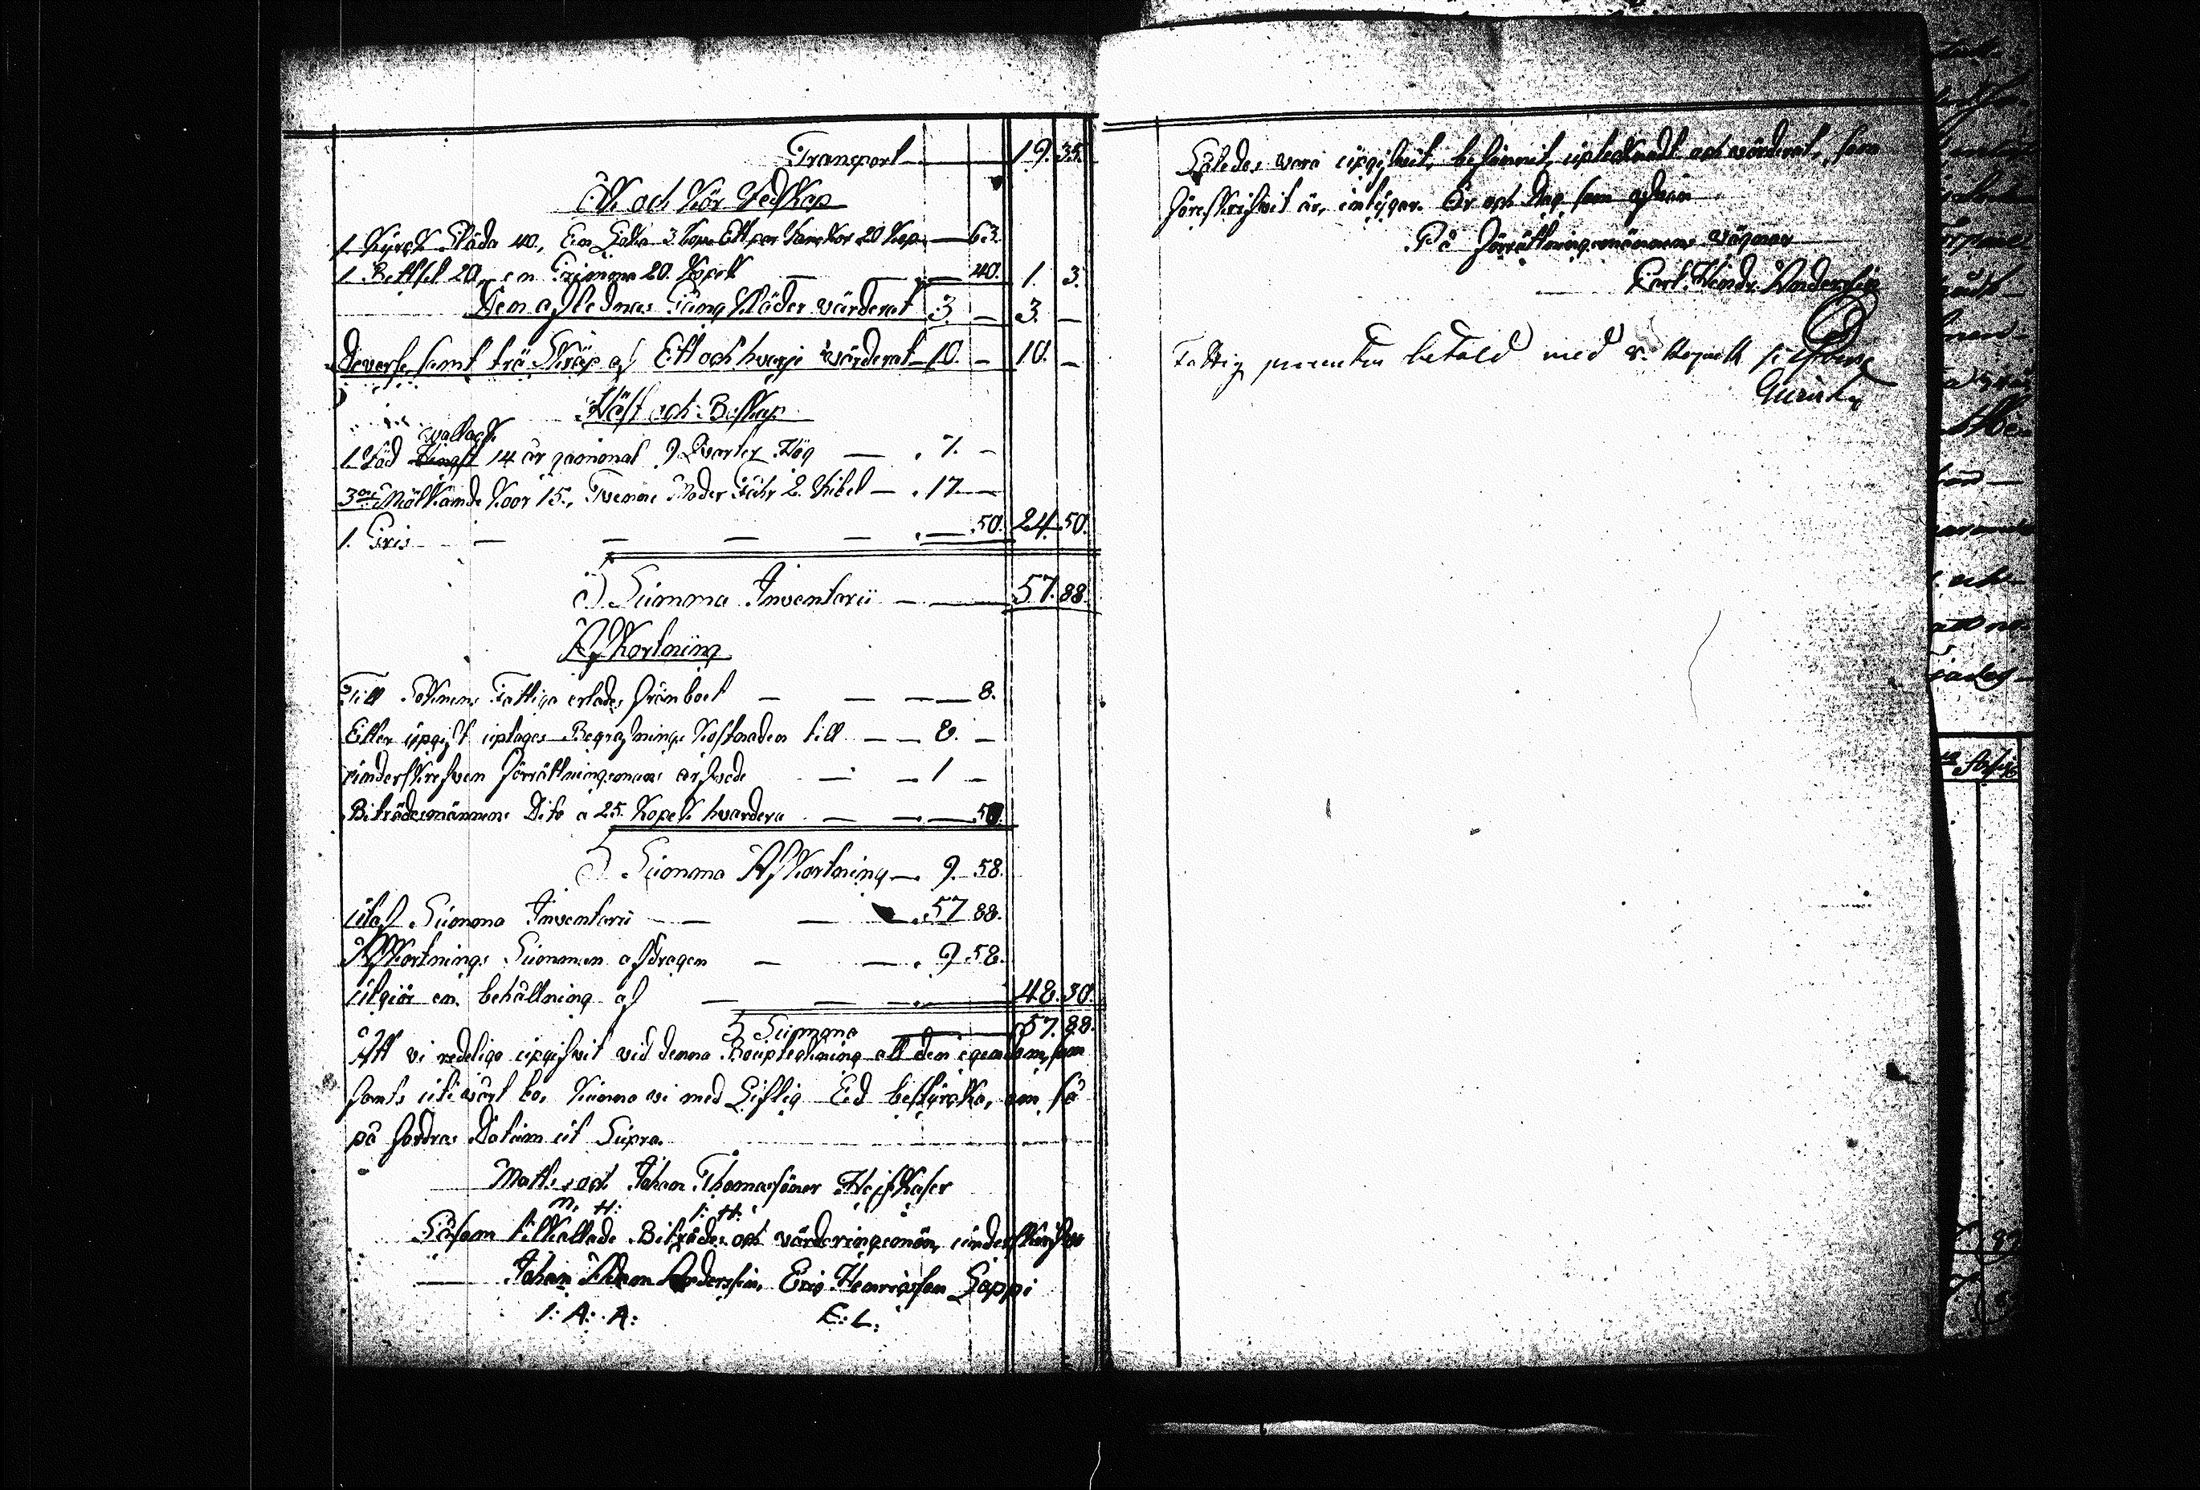 Transport — 19. 35.
Åk och Kör Redskap
1. Kyrck Släda 40, En Ett par 20 Kop. — 63.
1. Betsel 20, en Grimma 20. Kopek — 40. 1. 3.
Den aflednas Gång Kläder värderat 3. — 3. —
Diverse samt trä Skräp af Ett och hvarje värderat — 10. — 10. —
Häst och Boskap
wallack
1. Röd Hingst 14 år gammal 9 Qvarter Hög — 7. —
3ne Mölkande Koor 15., Tvenne Moder Fåhr 2. Rubel — 17. —
1. Gris — — — — 50. 24. 50.
Summa Inventarii — 57. 88.
Afkortning
Till Soknens Fattiga erlades från boet — — — 8.
Efter upgift uptages Begrafnings Kostnaden till — — 8. —
underskrefven Förrättningsmans arfvode — — 1 —
Biträdesmännens Dito a 25. Kopek hvardera — — 50.
Summa Afkortning — 9. 58.
Utaf Summa Inventarii — — 57 88.
Afkortnings Summan afdragen — — 9. 58.
Utgiör en behållning af — — — 48. 30.
Summa — 57. 88.
Att vi redeliga upgifvit vid denna Boupteckning all den egendom, som
fants uti vårt bo, kunna vi med Liflig Eed bestyrcka, om så
på fordras Datum ut Supra.
Matts och Johan Thomassöner Heiskaser
M. H: I: H:
Såsom tillkallade Biträdes och värderingsmän, underskrifva
Johan Adam Andersson, Eric Henricsson Lappi
I: A: A: E: L:
Således vara upgifvit, befunnit, uptecknadt och värderat, som
föreskrifvit är, intygar. År och dag som ofvan
På Förrättningsmännens vägnar
Carl Hendr. Andersin
Fattig procenten betald med 8. Kopeck